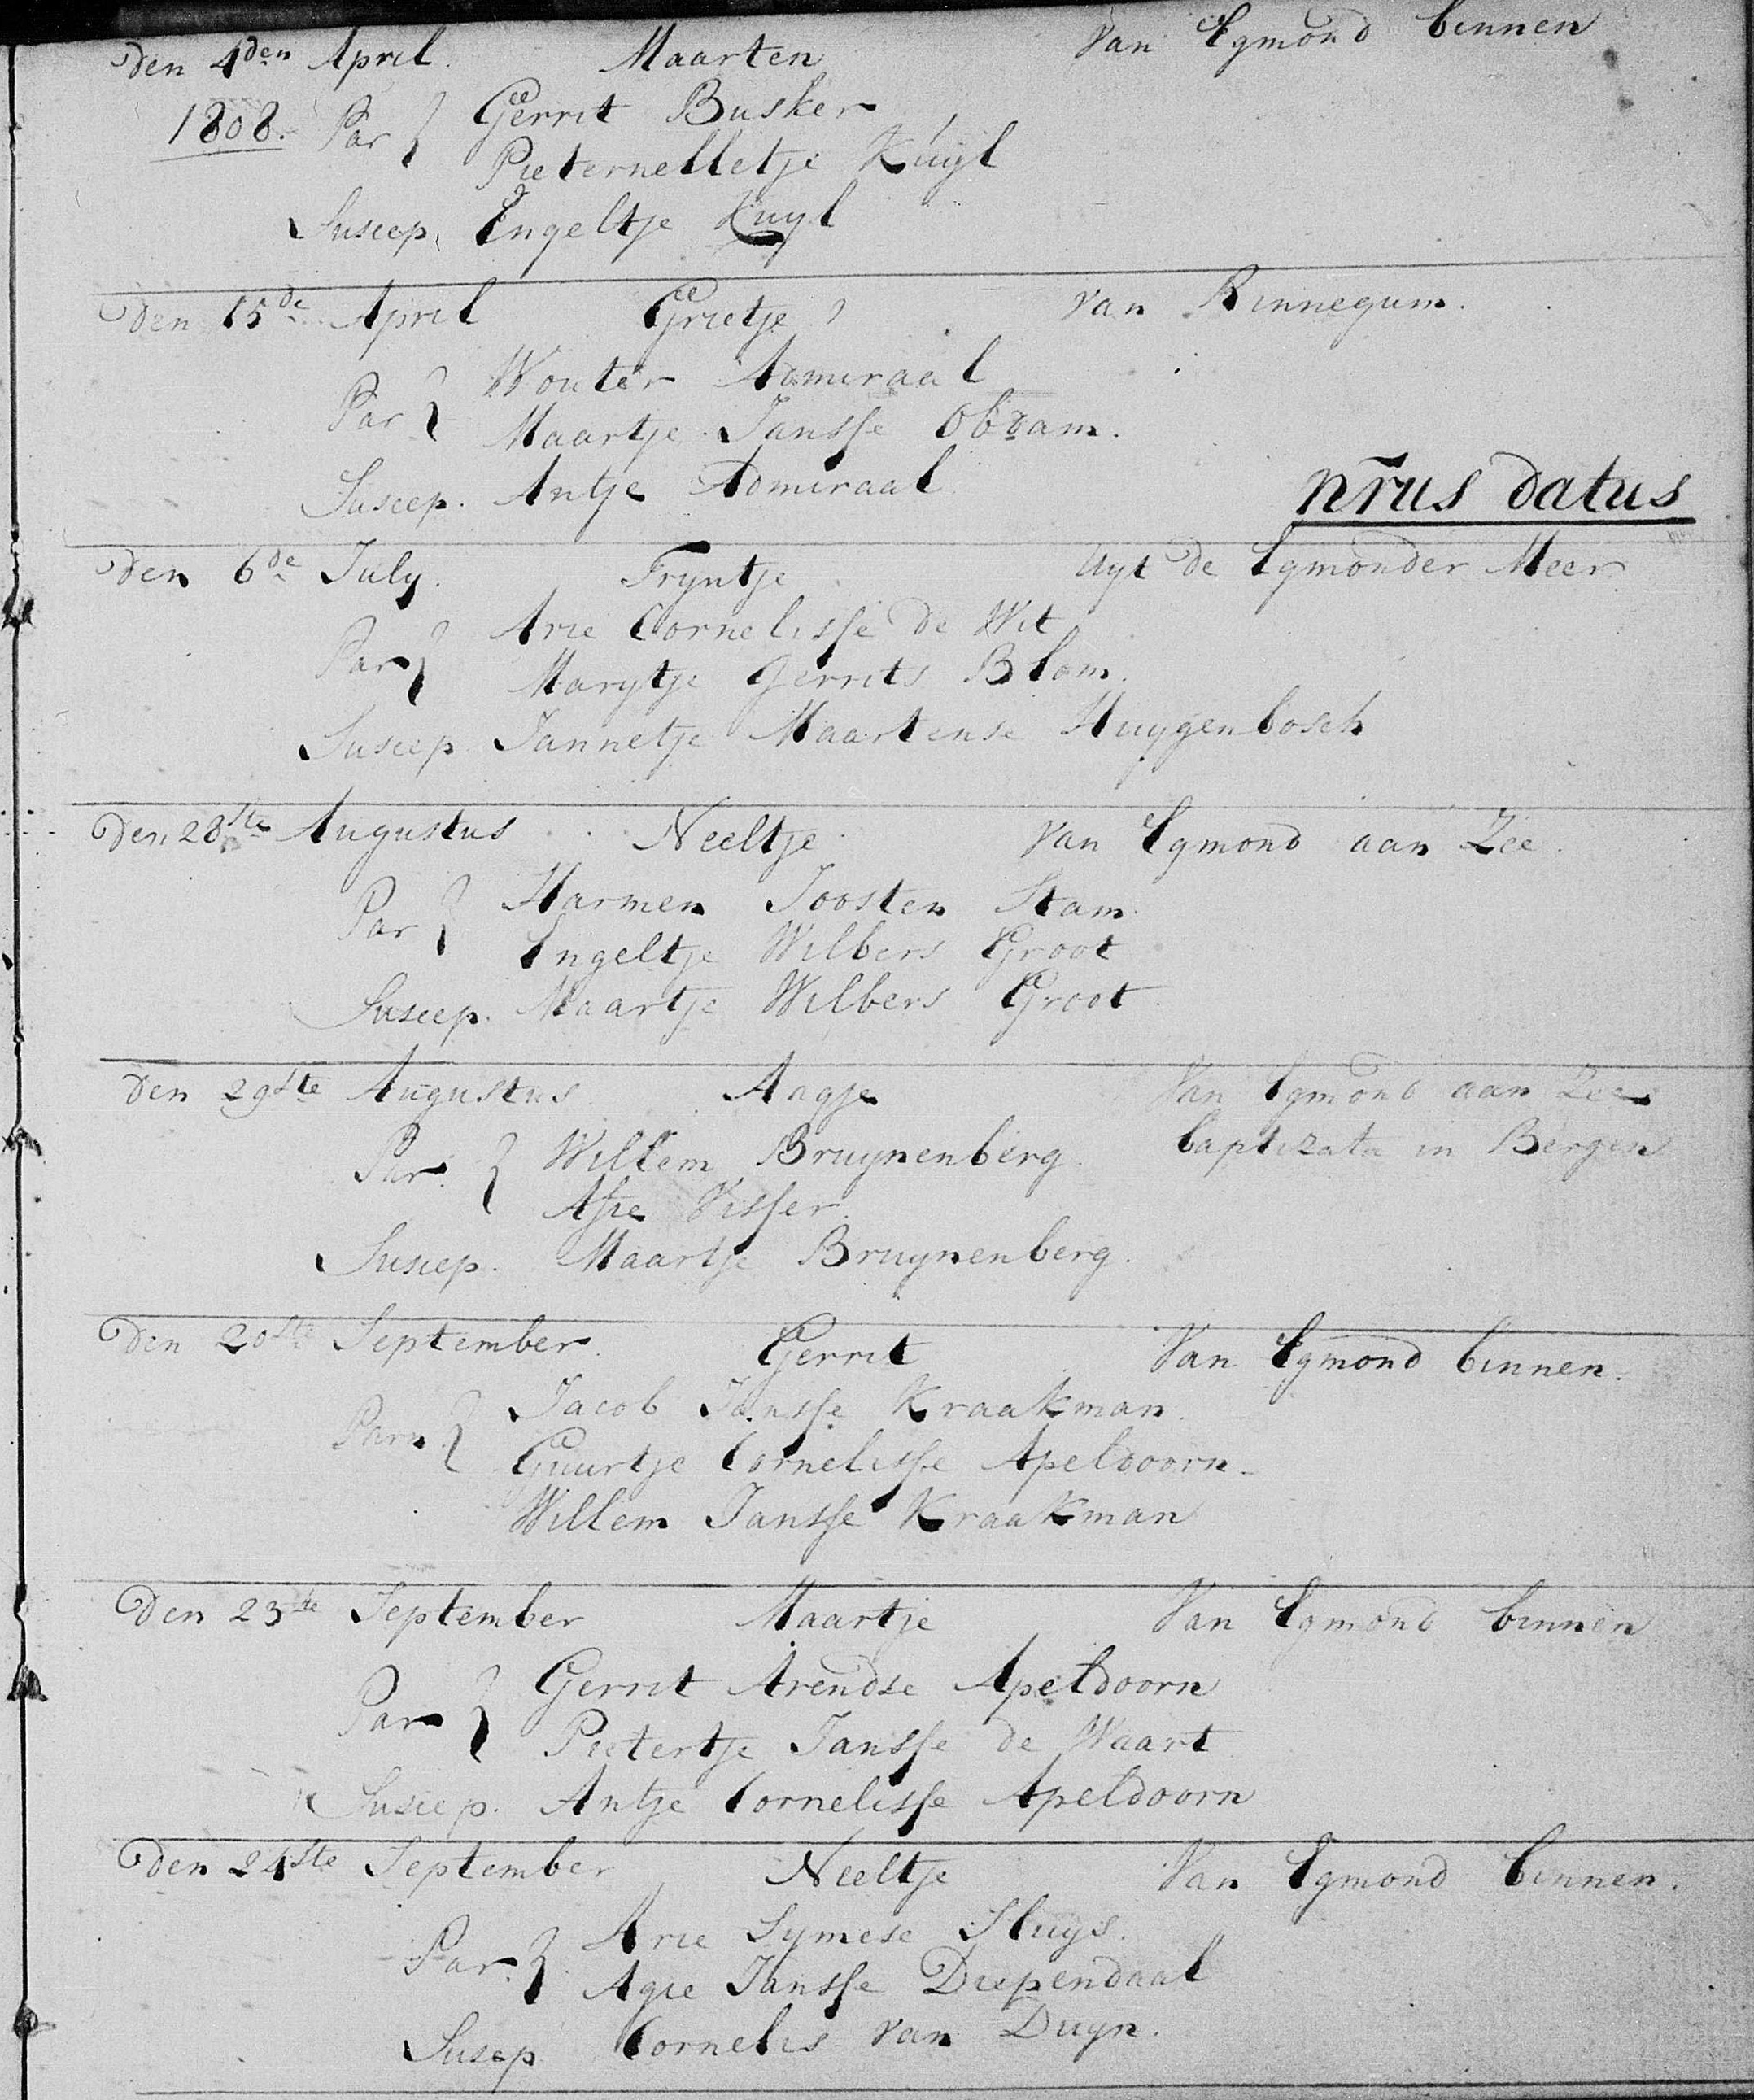 Den 4den April. Maarten Van Egmond binnen
1808. Par { Gerrit Busker
Pieternelletje Kuijl
Suscep. Engeltje Kuyl
Den 15de April Grietje van Rinnegum.
Par { Wouter Admiraal
Maartje Jansse Obdam.
Suscep. Antje Admiraal
nr̃us datus
Den 6de July. Tryntje Uyt de Egmonder Meer
Par { Arie Cornelisse de Wit
Marytje Gerrits Blom.
Suscep Jannetje Maartense Huygenbosch
Den 28ste Augustus Neeltje Van Egmond aan Zee.
Par { Harmen Joosten Stam
Engeltje Wilbers Groot
Suscep. Maartje Wilbers Groot
Den 29ste Augustus Aagje Van Egmond aan Zee
Par. { Willem Bruynenberg baptizata in Bergen
Afie Visser
Suscep. Maartje Bruynenberg.
Den 20ste September Gerrit Van Egmond binnen.
Parn. { Jacob Jansse Kraakman
Guurtje Cornelisse Apeldoorn
Willem Jansse Kraakman
Den 23ste September Maartje Van Egmond binnen
Par { Gerrit Arendse Apeldoorn
Pietertje Jansse de Waart
Suscep. Antje Cornelisse Apeldoorn
Den 24ste September Neeltje Van Egmond binnen.
Par. { Arie Symese Sluys.
Agie Jansse Diependaal
Suscep Cornelis van Duyn.